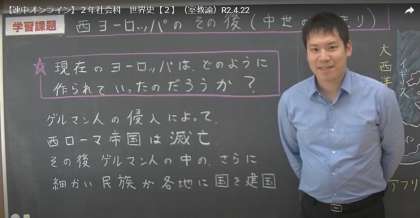 【池中オンライン】２年社会科　世界史【２】（室教諭）R2.4.22
学習課題
西ヨーロッパのその後（中世の
り）
☆現在のヨーロッパは、どのように
作られていったのだろうか？
ゲルマン人の侵入によって、
西ローマ帝国は滅亡
その後ゲルマン人の中の、さらに
細かい民族が各地に国を建国
大西
イギリス
アフリ